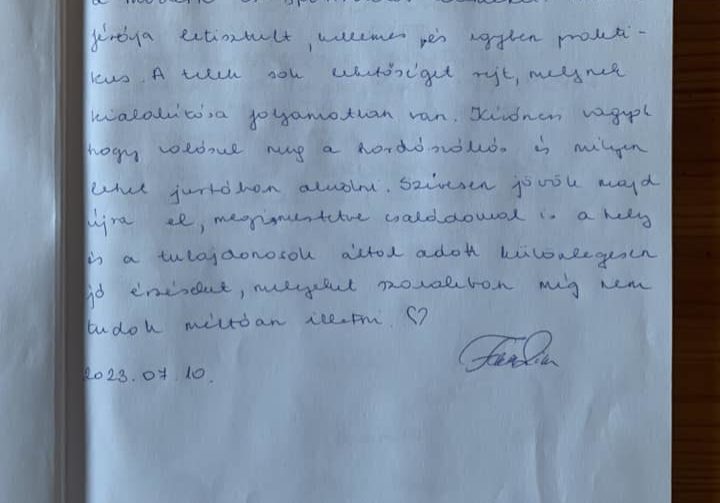 férája letisztult, kellemes és egyben prakti-
kus. A telek sok lehetőséget rejt, melynek
kialakítása folyamatban van. Kíváncsi vagyok
hogy valósul meg a hordószállás és milyen
lehet jurtában aludni. Szívesen jövök majd
újra el, megismertetve családommal is a hely
és a tulajdonosok által adott különlegesen
jó érzéseket, melyeket szavakban még nem
tudok méltóan illetni. ♡
2023.07.10.